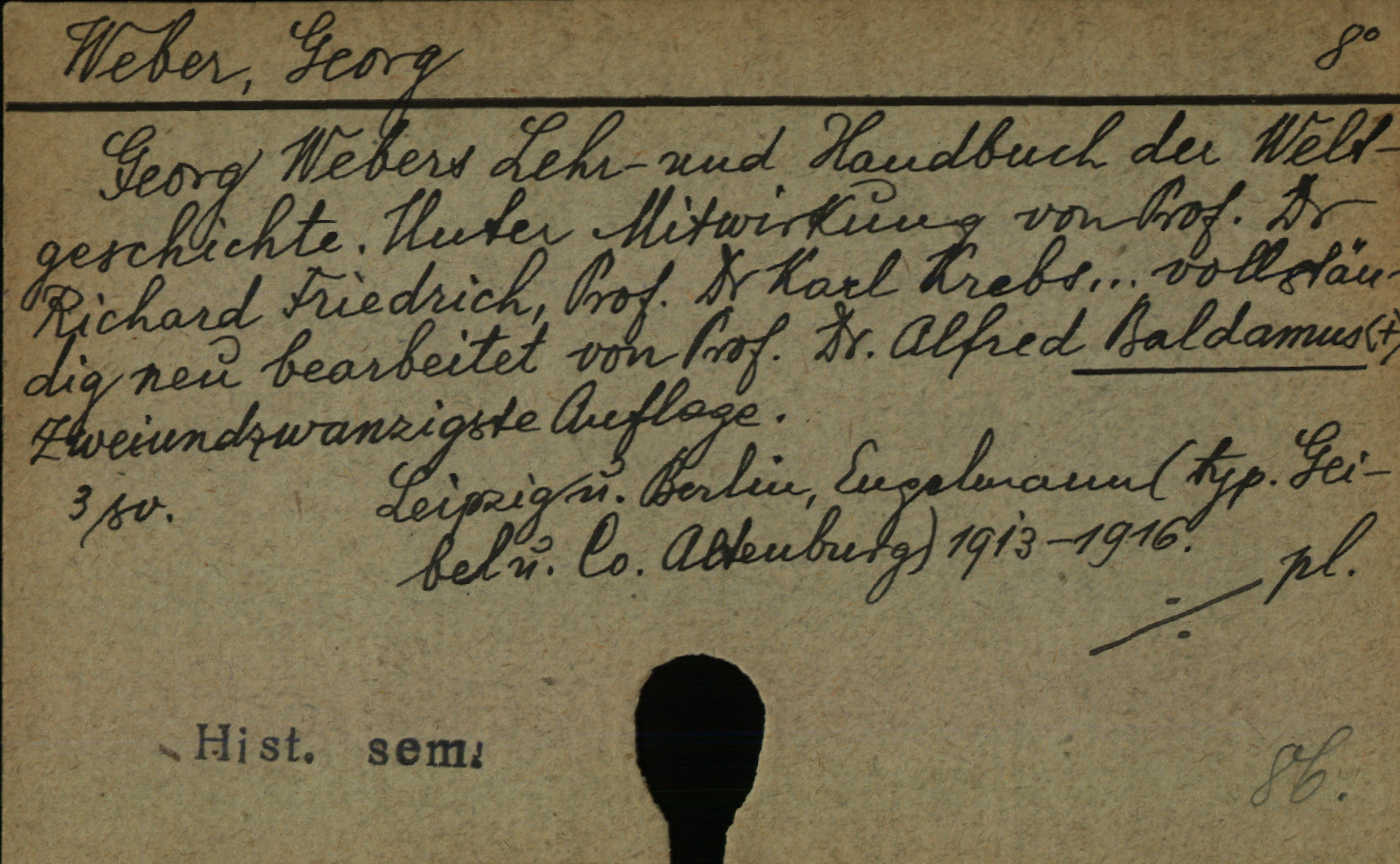 Weber, Georg 8°
Georg Webers Lehr- und Handbuch der Welt-
geschichte. Unter Mitwirkung von Prof. Dr
Richard Friedrich, Prof. Dr Karl Krebs... vollstän-
dig neu bearbeitet von Prof. Dr. Alfred Baldamus(†)
Zweiundzwanzigste Auflage.
3 sv. Leipzig u. Berlin, Engelmann (typ. Gei-
bel u. Co. Altenburg) 1913-1916.
pl.
Hist. sem.